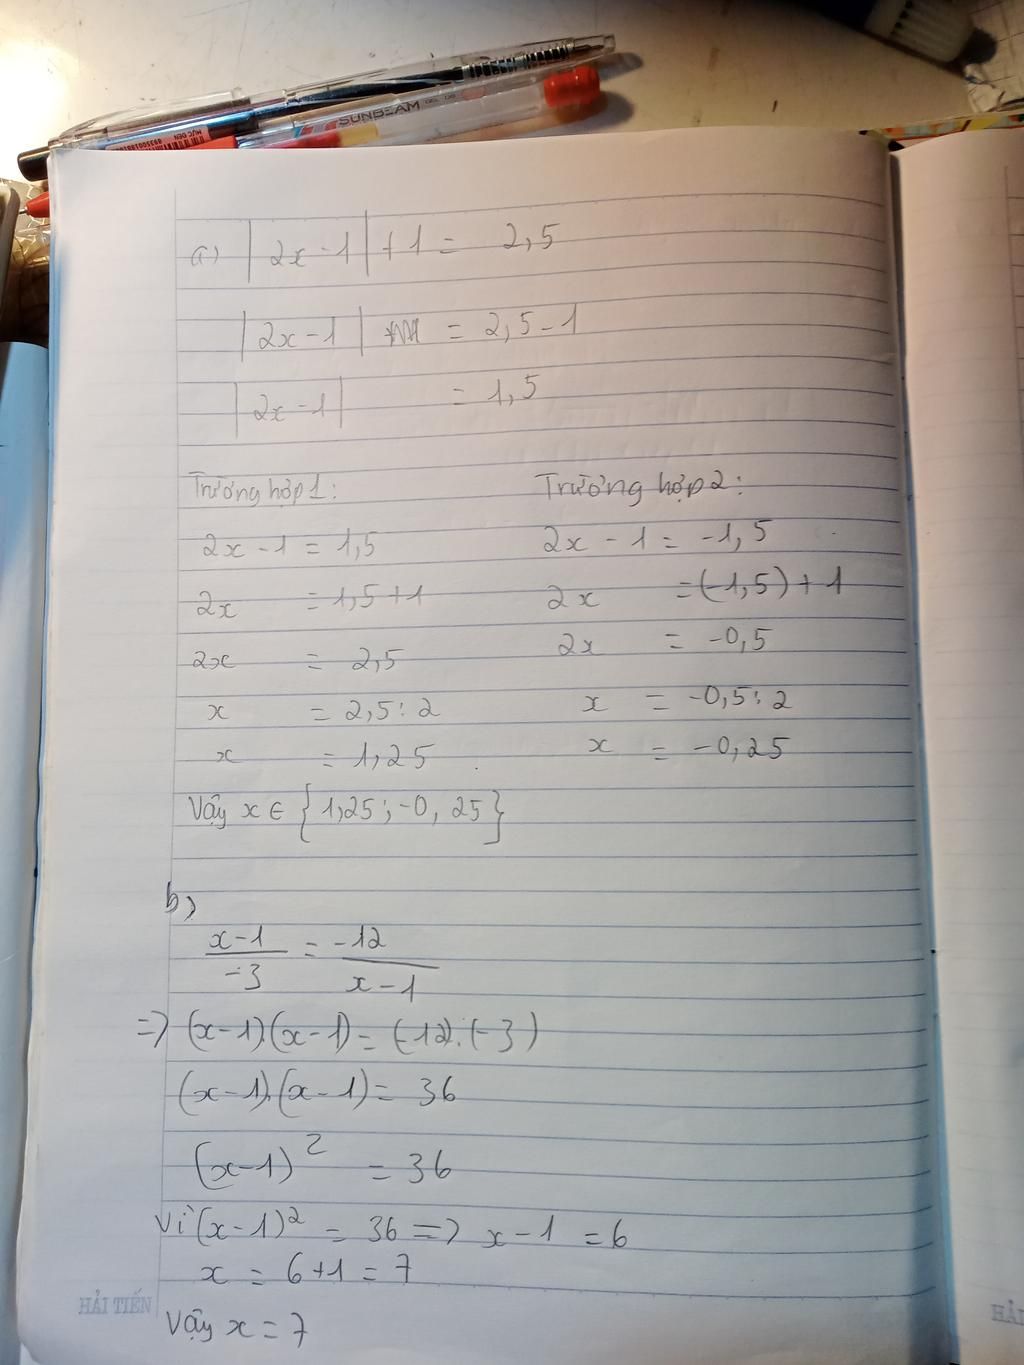 SUNBEAM
MỰC ĐEN
a) |2x-1| + 1 = 2,5
|2x-1| = 2,5-1
|2x-1| = 1,5
Trường hợp 1:
2x-1 = 1,5
2x = 1,5+1
2x = 2,5
x = 2,5:2
x = 1,25
Trường hợp 2:
2x-1 = -1,5
2x =(-1,5)+1
2x = -0,5
x = -0,5:2
x = -0,25
Vậy x ∈ {1,25;-0,25}
b)
x-1/-3 = -12/x-1
=> (x-1).(x-1) = (-12).(-3)
(x-1).(x-1) = 36
(x-1)² = 36
Vì (x-1)² = 36 => x-1 = 6
x = 6+1 = 7
Vậy x = 7
HẢI TIẾN
HẢI